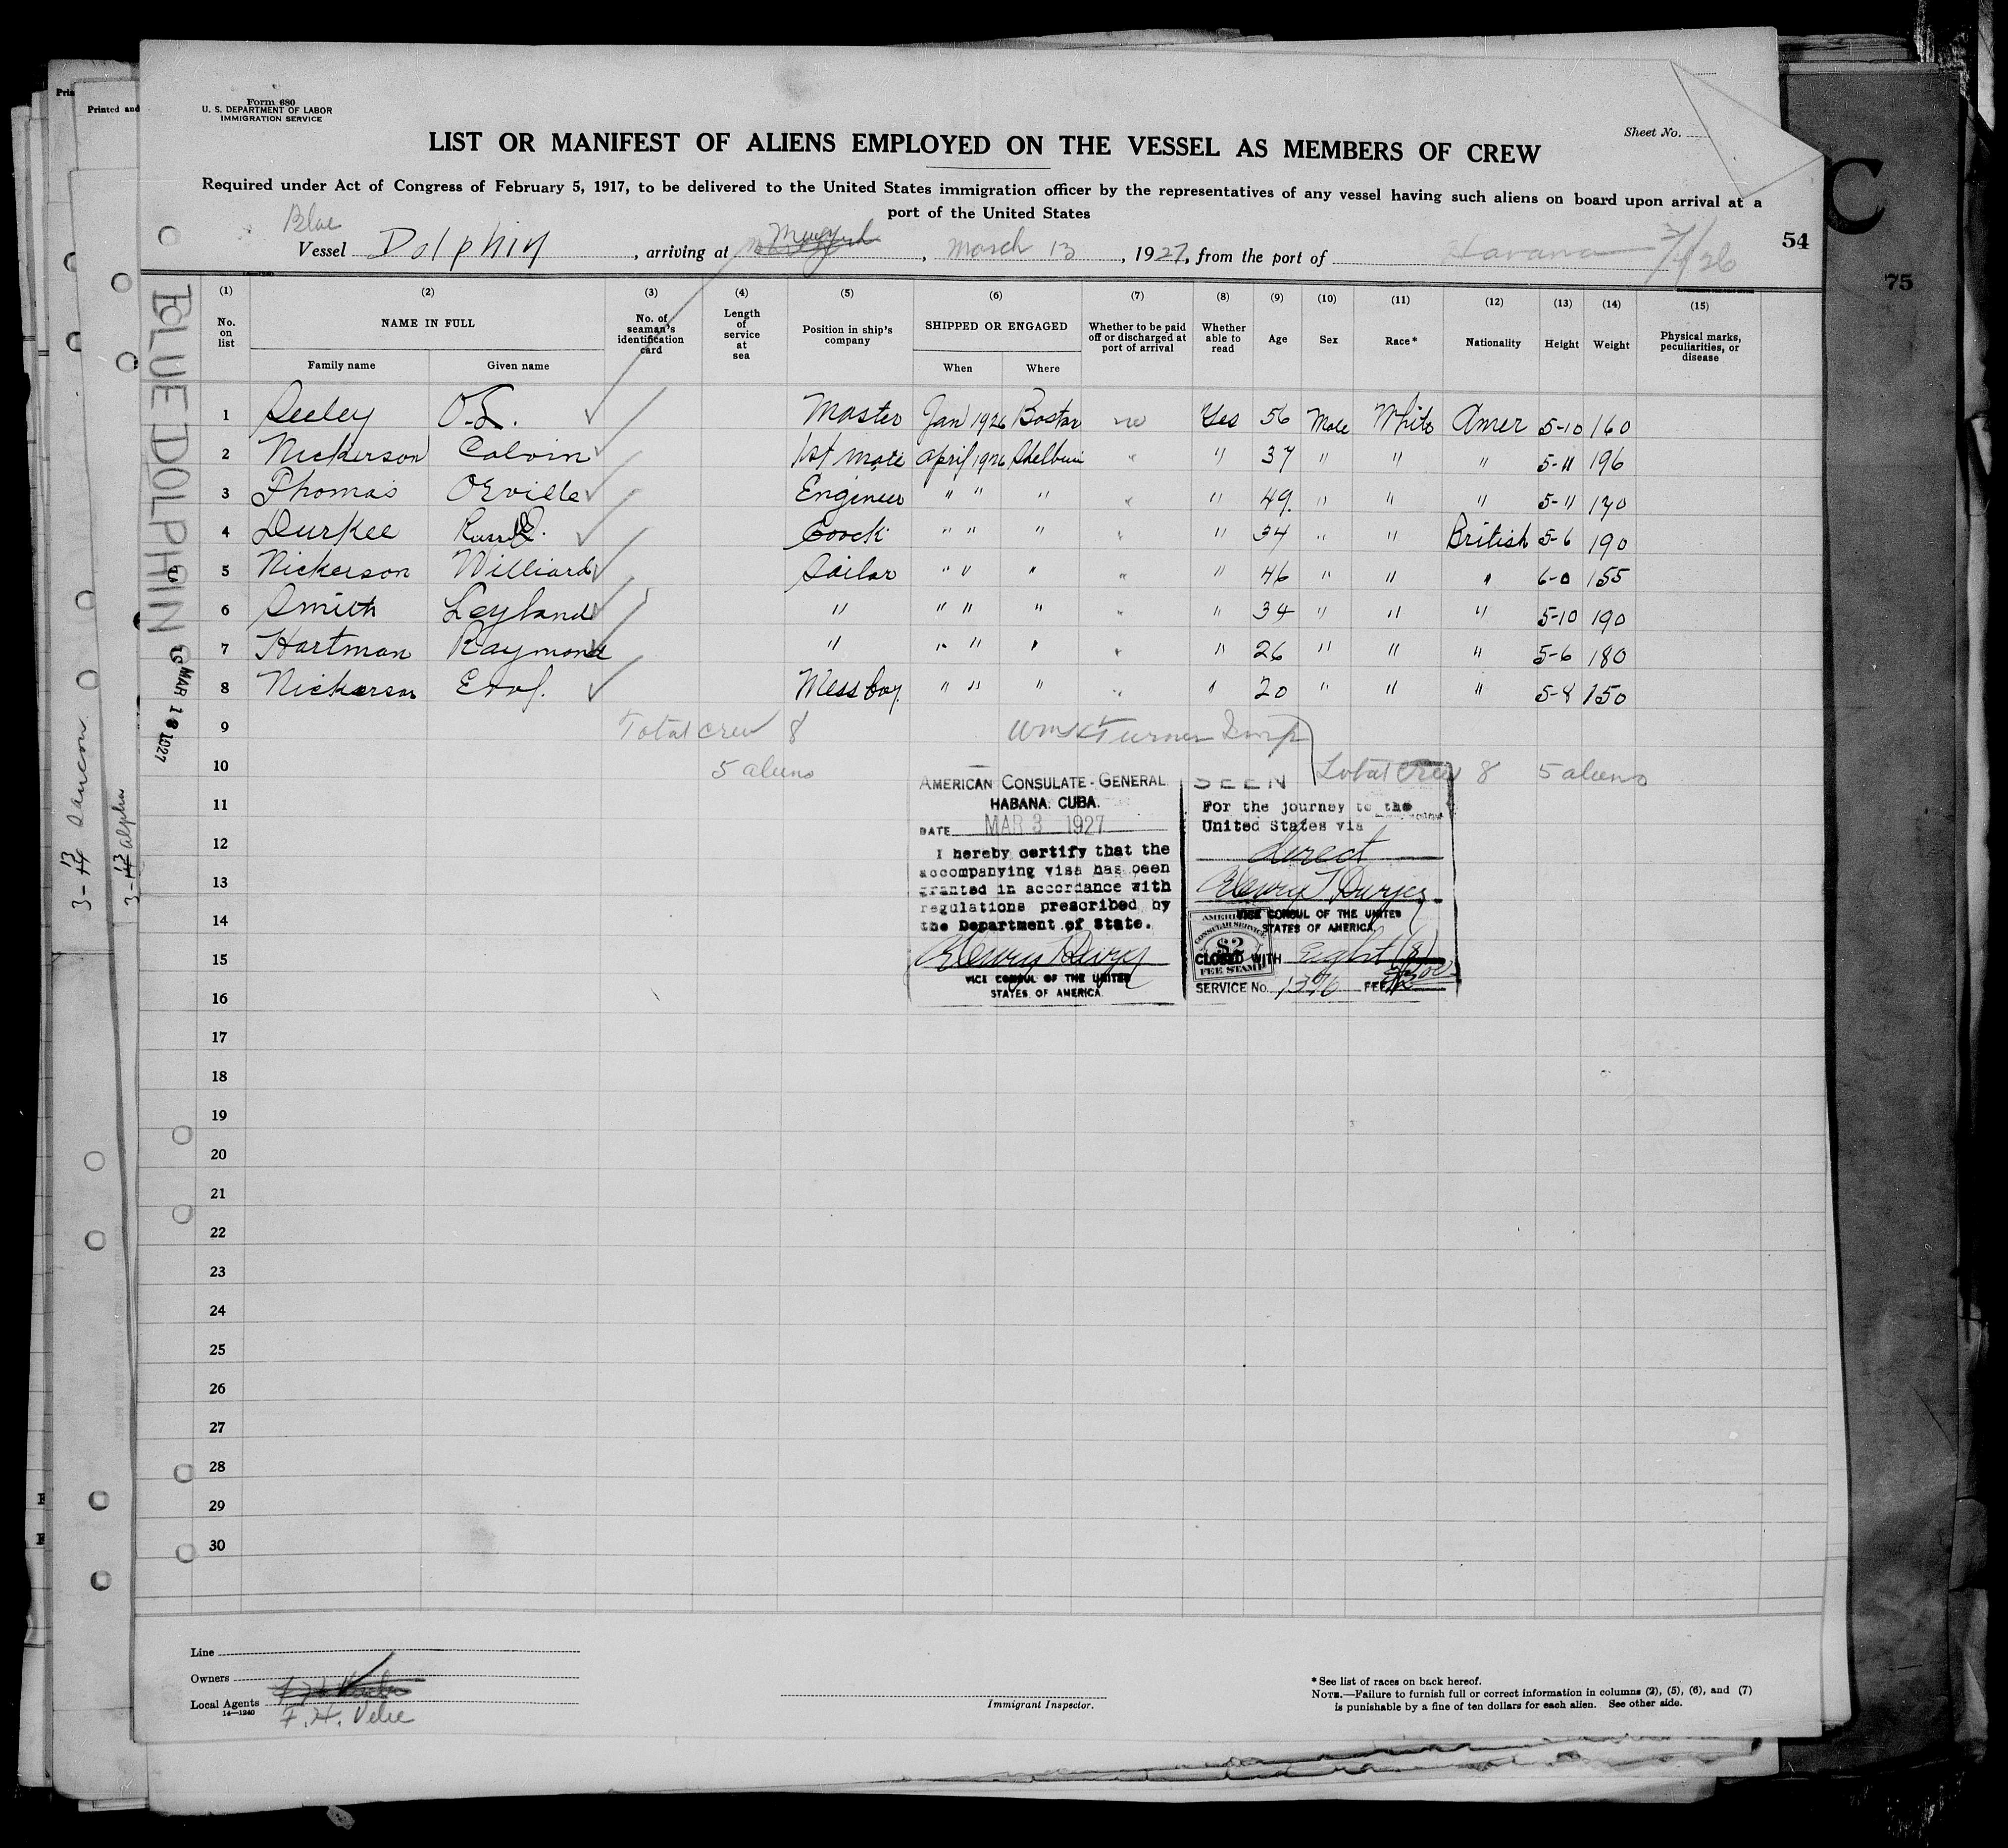 Form 680
U. S. DEPARTMENT OF LABOR
IMMIGRATION SERVICE
Sheet No.
LIST OR MANIFEST OF ALIENS EMPLOYED ON THE VESSEL AS MEMBERS OF CREW
Required under Act of Congress of February 5, 1917, to be delivered to the United States immigration officer by the representatives of any vessel having such aliens on board upon arrival at a
port of the United States
Blue
Vessel Dolphin, arriving at , March 13, 1927, from the port of Havana
54
C
75
BLUE DOLPHIN
MAR 13 1927
3-13 San
3-13 alpha
Printed and
(1) (2) (3) (4) (5) (6) (7) (8) (9) (10) (11) (12) (13) (14) (15)
No. on list
NAME IN FULL
Family name Given name
No. of seaman's identification card
Length of service at sea
Position in ship's company
SHIPPED OR ENGAGED
When Where
Whether to be paid off or discharged at port of arrival
Whether able to read
Age
Sex
Race*
Nationality
Height
Weight
Physical marks, peculiarities, or disease
1 Seeley O.L. Master Jan 1926 Boston no Yes 56 Male White Amer 5-10 160
2 Nickerson Calvin 1st Mate April 1926 Shelburn " " 37 " " " 5-11 196
3 Thomas Orville Engineer " " " " " 49 " " " 5-11 170
4 Durkee Coock " " " " " 34 " " British 5-6 190
5 Nickerson Williard Sailor " " " " " 46 " " " 6-0 155
6 Smith Leyland " " " " " " 34 " " " 5-10 190
7 Hartman Raymond " " " " " " 26 " " " 5-6 180
8 Nickerson Mess boy " " " " " 20 " " " 5-8 150
9 Total crew 8 Turner Insp
10 5 aliens Total crew 8 5 aliens
11
12
13
14
15
16
17
18
19
20
21
22
23
24
25
26
27
28
29
30
AMERICAN CONSULATE-GENERAL
HABANA, CUBA.
DATE MAR 3 1927
I hereby certify that the
accompanying visa has been
granted in accordance with
regulations prescribed by
the Department of State.
VICE CONSUL OF THE UNITED
STATES OF AMERICA.
SEEN
For the journey to the
United States via
direct
VICE CONSUL OF THE UNITED
STATES OF AMERICA
AMERICAN
CONSULAR SERVICE
$2
FEE STAMP
CLOSED WITH Eight (8)
SERVICE No. 1396 FEE
Line
Owners
Local Agents
14—1240
F. H.
Immigrant Inspector.
* See list of races on back hereof.
NOTE.—Failure to furnish full or correct information in columns (2), (5), (6), and (7)
is punishable by a fine of ten dollars for each alien. See other side.